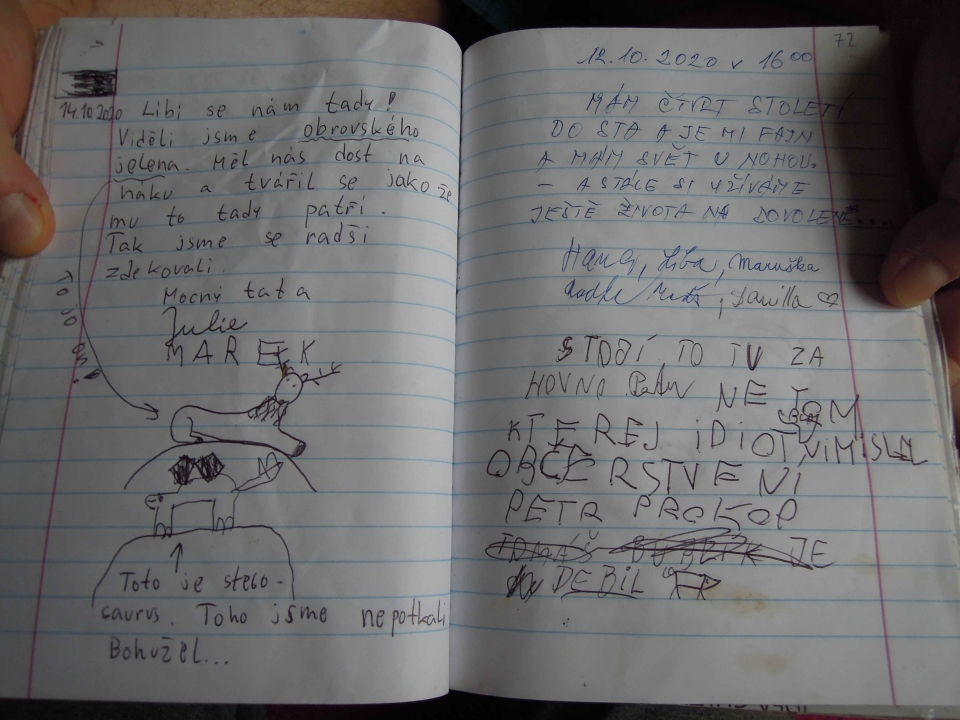 14.10.2020 Líbí se nám tady!
Viděli jsme obrovského
jelena. Měl nás dost na
háku a tvářil se jako že
mu to tady patří.
Tak jsme se radši
zdekovali.
Mocný tata
Julie
MAREK
Toto je stego-
saurus. Toho jsme nepotkali
Bohužel...
72
12.10.2020 v 16⁰⁰
MÁM ČTVRT STOLETÍ
DO STA A JE MI FAJN
A MÁM SVĚT U NOHOU.
– A STÁLE SI UŽÍVÁME
JEŠTĚ ŽIVOTA NA DOVOLENÉ....
Hana, Liba, Maruška
STOJÍ TO TU ZA
HOVNO NE
KTEREJ IDIOT VIMISLEL
OBČERSTVENÍ
PETR PROKOP
JE
DEBIL